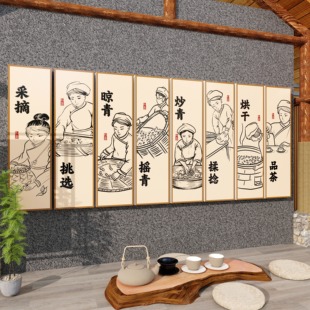 采摘
挑选
晾青
摇青
炒青
揉捻
烘干
品茶